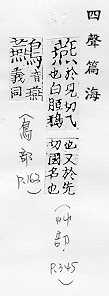 四聲篇海
燕於見切乙也白脰鵶也又於先切國名也
(艸部 P.345)
䴏音燕義同
(鳥部 P.162)